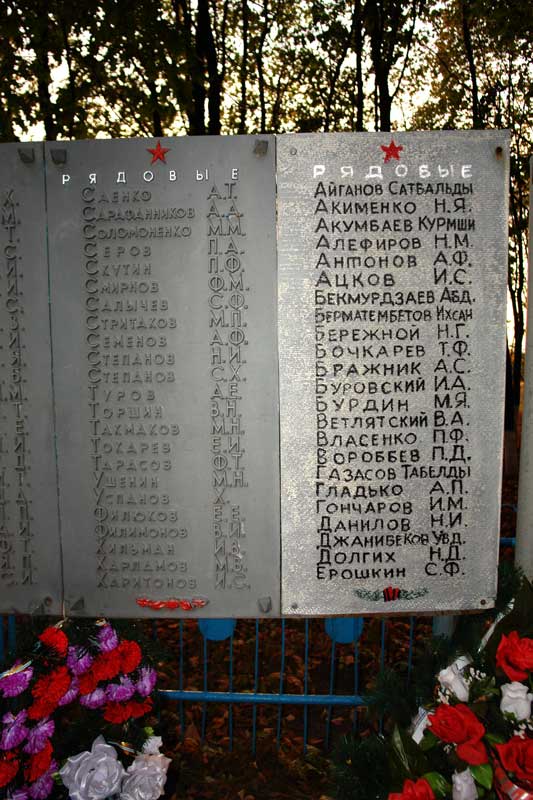 РЯДОВЫЕ
САЕНКО А.Т.
САРАФАННИКОВ А.А.
СОЛОМОНЕНКО М.М.
СЕРОВ П.А.
СКУТИН П.Ф.
СМИРНОВ Ф.М.
САЛЫЧЕВ С.Ф.
СТРИТАКОВ М.П.
СЕМЕНОВ А.Ф.
СТЕПАНОВ П.И.
СТЕПАНОВ С.Х.
ТУРОВ А.Е.
ТОРШИН В.Н.
ТАКМАКОВ М.Н.
ТОКАРЕВ Е.И.
ТАРАСОВ Ф.Т.
УШЕНИН М.Н.
УСПАНОВ Х.
ФИЛЮКОВ
ФИЛИМОНОВ
ХИЛЬМАН
ХАРЛАМОВ
ХАРИТОНОВ И.С.
РЯДОВЫЕ
АЙГАНОВ САТБАЛЬДЫ
АКИМЕНКО Н.Я.
АКУМБАЕВ КУРМИШИ
АЛЕФИРОВ Н.М.
АНТОНОВ А.Ф.
АЦКОВ И.С.
БЕКМУРДЗАЕВ АБД.
БЕРМАТЕМБЕТОВ ИХСАН
БЕРЕЖНОЙ Н.Г.
БОЧКАРЕВ Т.Ф.
БРАЖНИК А.С.
БУРОВСКИЙ И.А.
БУРДИН М.Я.
ВЕТЛЯТСКИЙ В.А.
ВЛАСЕНКО П.Ф.
ВОРОБЬЕВ П.Д.
ГАЗАСОВ ТАБЕЛДЫ
ГЛАДЬКО А.П.
ГОНЧАРОВ И.М.
ДАНИЛОВ Н.И.
ДЖАНИБЕКОВ УВД.
ДОЛГИХ Н.Д.
ЕРОШКИН С.Ф.